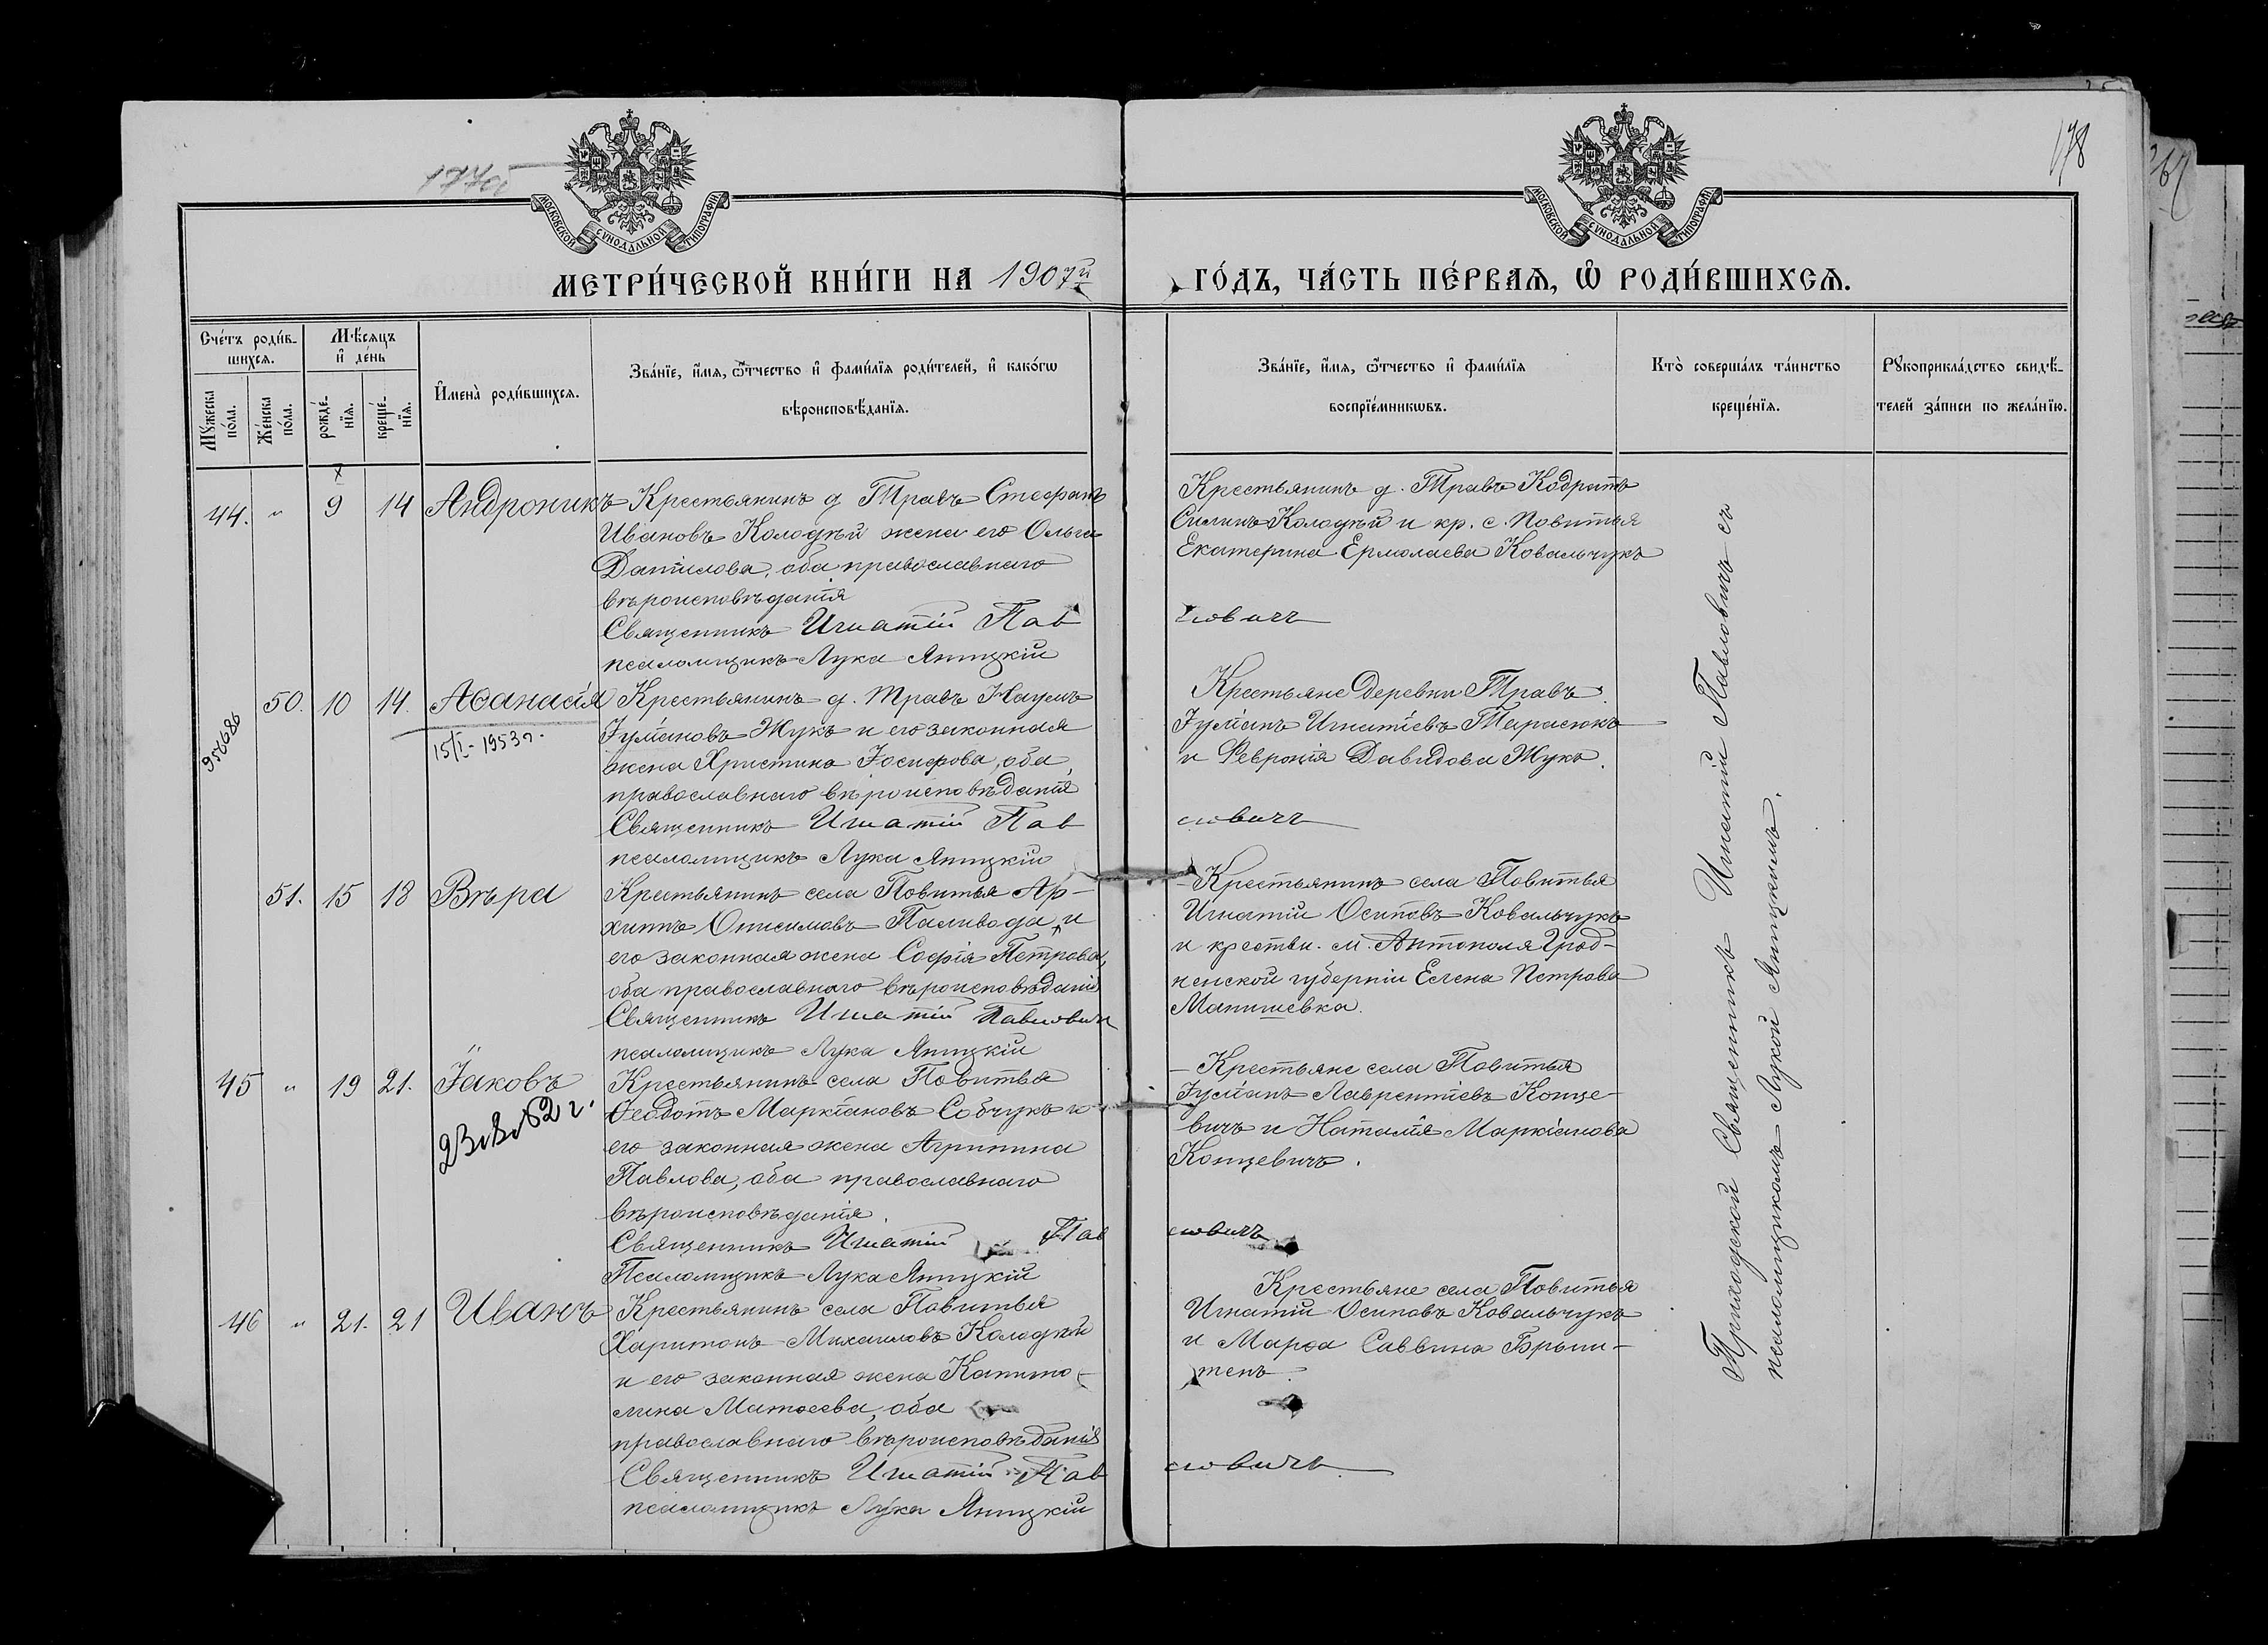 177об
178
МОСКОВСКОЙ СѴНОДАЛЬНОЙ ТИПОГРАФІИ
МОСКОВСКОЙ СѴНОДАЛЬНОЙ ТИПОГРАФІИ
МЕТРИ́ЧЕСКОЙ КНИ́ГИ НА 1907й
ГО́ДЪ, ЧА́СТЬ ПЕ́РВАѦ, Ѡ҆ РОДИ́ВШИХСѦ.
Сче́тъ роди́в-
шихсѧ.
Мꙋ́жеска по́ла.
Же́нска по́ла.
Мѣ́сѧцъ
и҆ де́нь
рожде́-
нїѧ.
креще́-
нїѧ.
И҆мена̀ роди́вшихсѧ.
Зва́нїе, и҆́мѧ, ѻ҆́тчество и҆ фами́лїѧ роди́телей, и҆ како́гѡ
вѣроисповѣ́данїѧ.
Зва́нїе, и҆́мѧ, ѻ҆́тчество и҆ фами́лїѧ
воспрїе́мникѡвъ.
Кто̀ соверша́лъ та́инство
креще́нїѧ.
Рꙋкоприкла́дство свидѣ́-
телей за́писи по жела́нїю.
44. " 9 14 Андроникъ
Крестьянинъ д Травъ Стефанъ
Ивановъ Колодѣй жена его Ольга
Данилова, оба православнаго
вѣроисповѣданія
Священникъ Игнатій Пав
псаломщикъ Лука Яницкій
Крестьянинъ д. Травъ Кодратъ
Силинъ Колодѣй и кр. с. Повитья
Екатерина Ермолаева Ковальчукъ
ловичъ
50. 10 14. Аѳанасія
958686
15/I - 1953г.
Крестьянинъ д. Травъ Наумъ
Іуліановъ Жукъ и его законная
жена Христина Іосифова, оба
православнаго вѣроисповѣданія
Священникъ Игнатій Пав
псаломщикъ Лука Яницкій
Крестьяне деревни Травъ
Іуліанъ Игнатіевъ Тарасюкъ
и Февронія Давидова Жукъ.
ловичъ
51. 15 18 Вѣра
Крестьянинъ села Повитья Ар-
хипъ Онисимовъ Паливода и
его законная жена Софія Петрова,
оба православнаго вѣроисповѣданія
Священникъ Игнатій Павловичъ
псаломщикъ Лука Яницкій
Крестьянинъ села Повитья
Игнатій Осиповъ Ковальчукъ
и крестьн. м. Антополя Грод-
ненской губерніи Елена Петрова
45 " 19 21. Іаковъ
Крестьянинъ села Повитья
Ѳеодотъ Маркіановъ Собчукъ и
его законная жена Агрипина
Павлова, оба православнаго
вѣроисповѣданія.
Священникъ Игнатій Пав
Псаломщикъ Лука Яницкій
Крестьяне села Повитья
Іуліанъ Лаврентіевъ Конце-
вичъ и Наталія Маркіанова
Концевичъ.
ловичъ
46 " 21. 21 Иванъ
Крестьянинъ села Повитья
Харитонъ Михаиловъ Колодѣй
и его законная жена Капито-
лина Матѳеева, оба
православнаго вѣроисповѣданія
Священникъ Игнатій Пав
псаломщикъ Лука Яницкій
Крестьяне села Повитья
Игнатій Осиповъ Ковальчукъ
и Марѳа Саввина
ловичъ
Приходской Священникъ Игнатій Павловичъ съ
псаломщикомъ Лукой Яницкимъ.